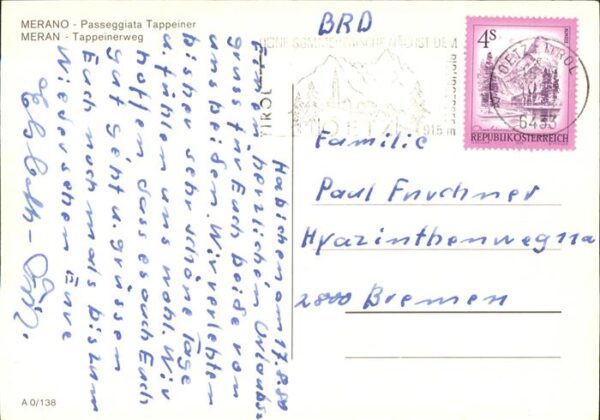 MERANO - Passeggiata Tappeiner
MERAN - Tappeinerweg
BRD
4S
REPUBLIK ÖSTERREICH
OETZ TIROL
6433
TIROL
OETZ
915m
Familie
Paul
Hyazinthenweg 11a
2800 Bremen
Habichen, am 17.8.80
Einen herzlichen Urlaubs
gruss für Euch beide von
uns beiden. Wir verlebten
bisher sehr schöne Tage
u. fühlen uns wohl. Wir
hoffen dass es auch Euch
gut geht u. grüssen
Euch noch mals bis zum
Wiedersehen Eure
Elsbeth - Fritz.
A 0/138